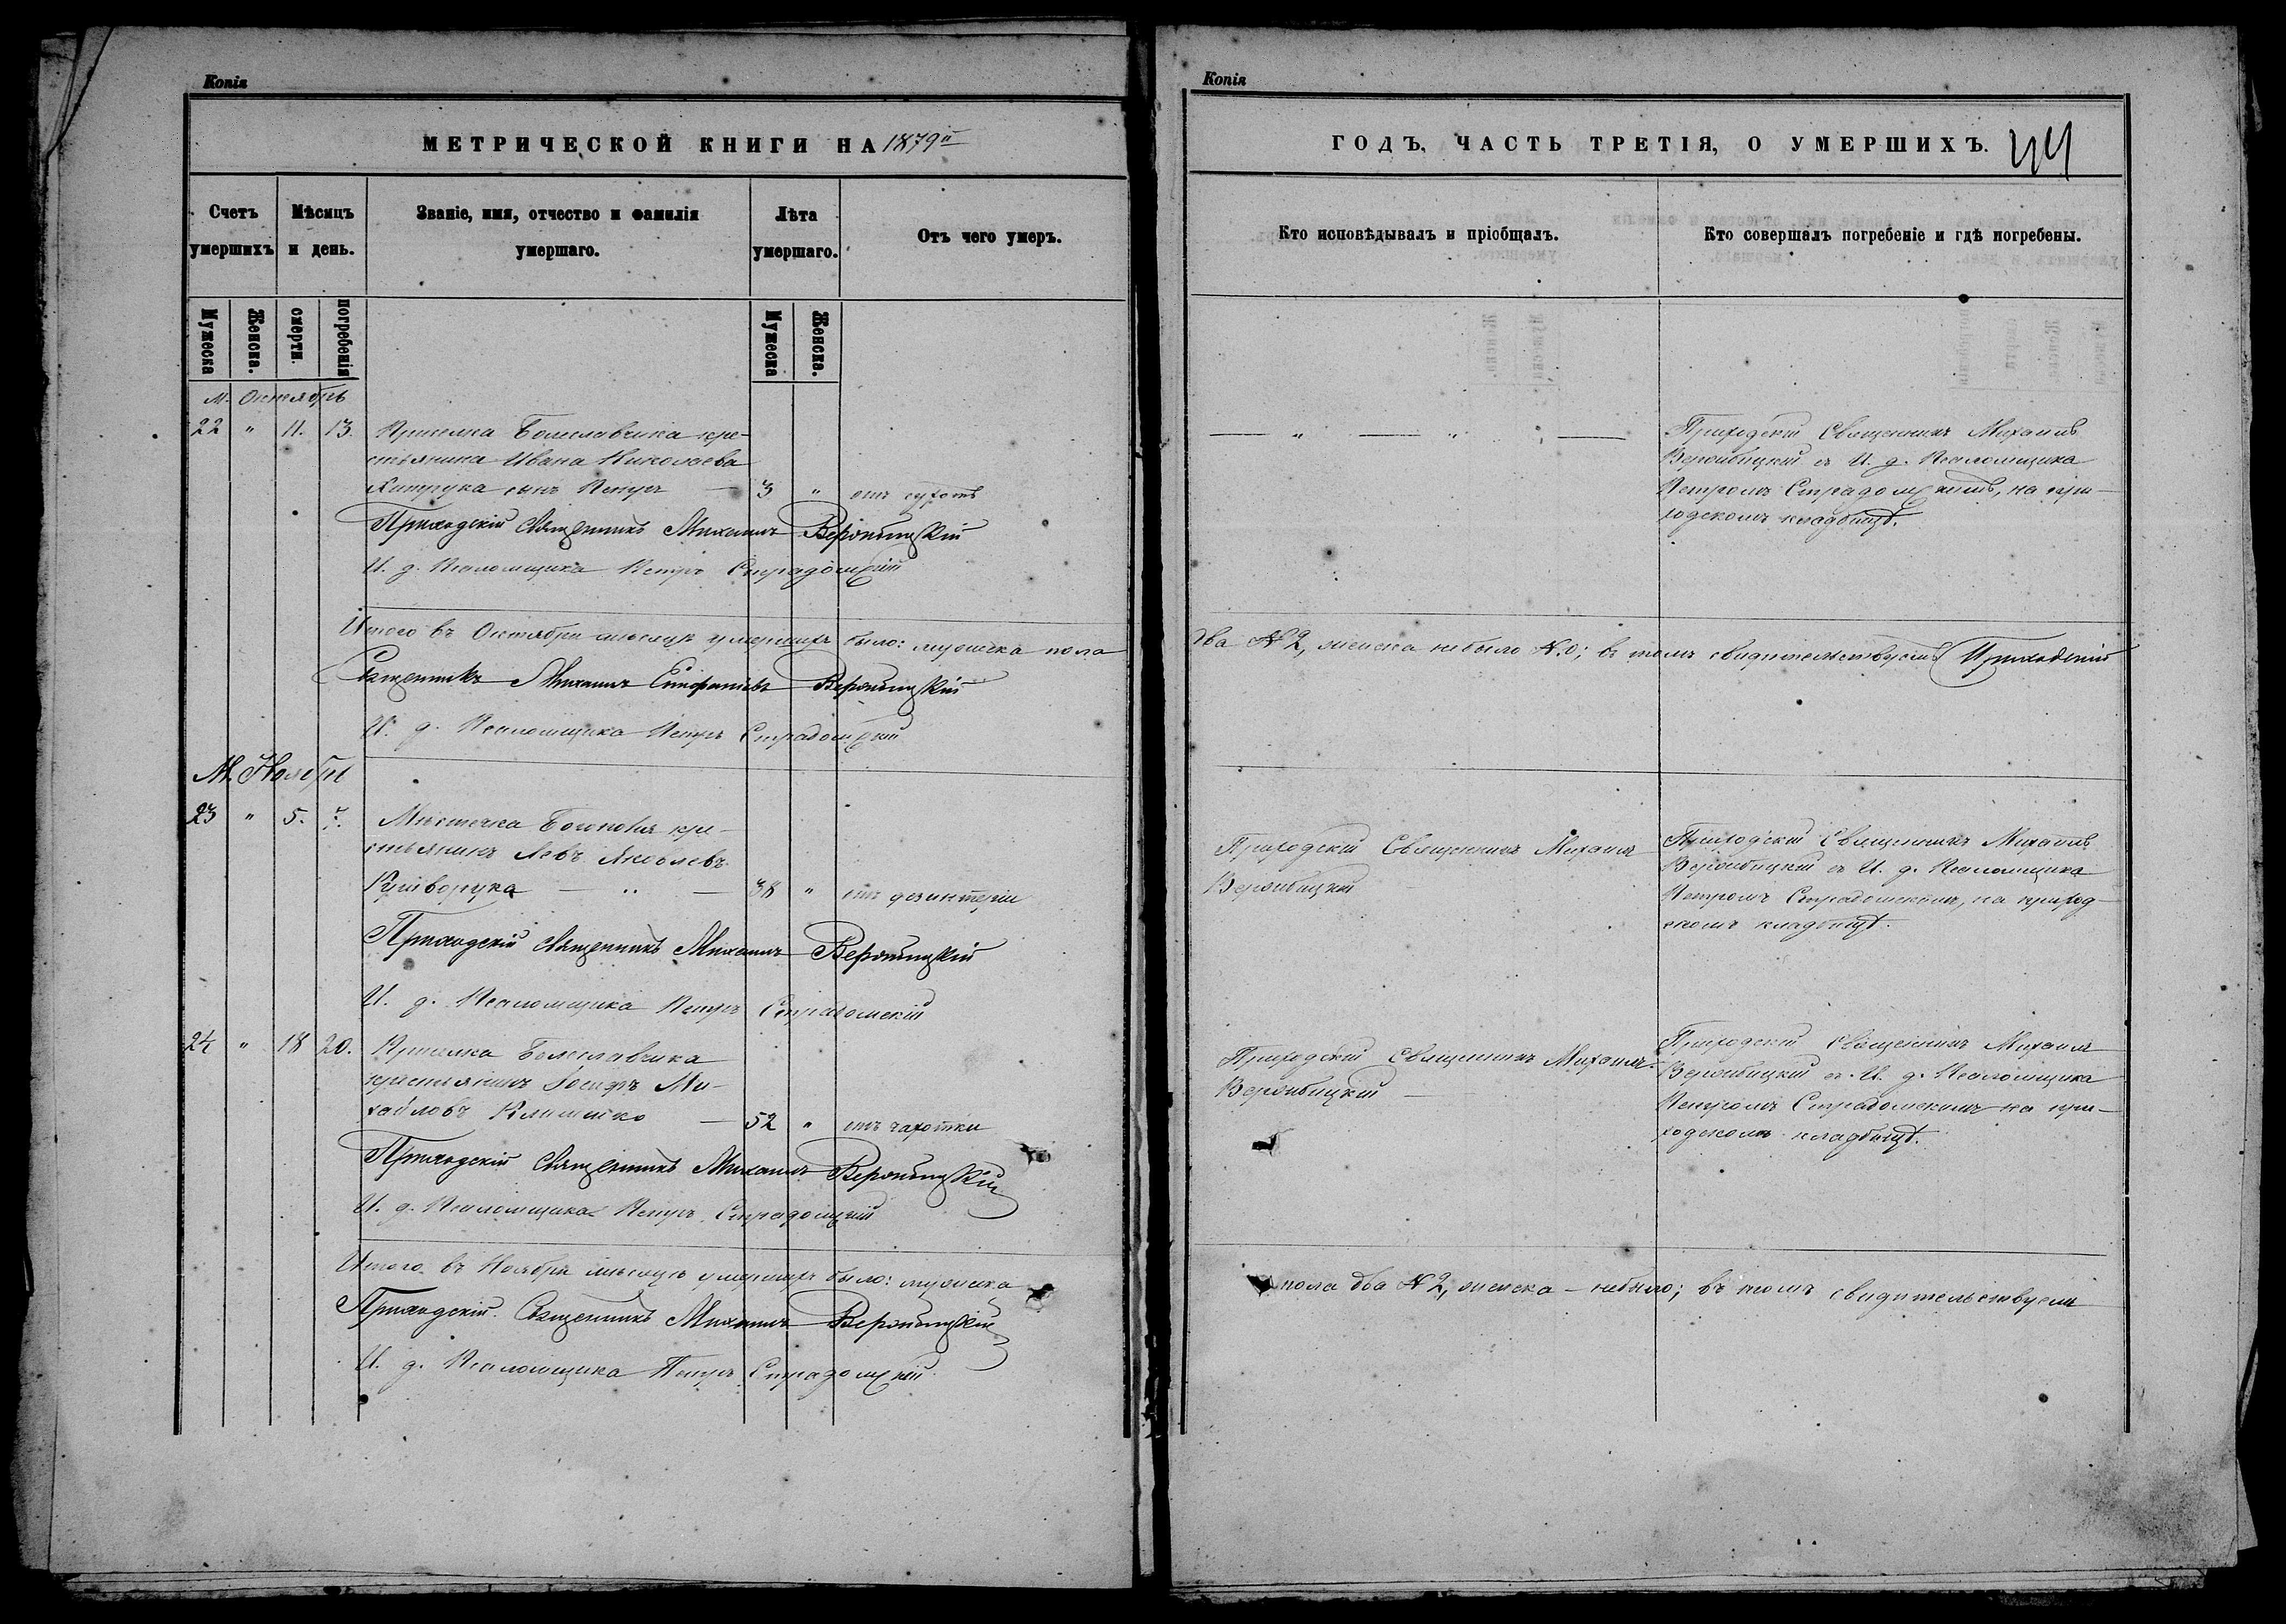 Копія
МЕТРИЧЕСКОЙ КНИГИ НА 1879й
Счетъ умершихъ
Мѣсяцъ и день.
Званіе, имя, отчество и фамилія умершаго.
Лѣта умершаго.
Отъ чего умеръ.
Мужеска
Женска.
смерти.
погребенія
Мужеска
Женска.
М. Октябрь
22 " 11. 13. Приселка Болеславчика кре-
стьянина Ивана Николаева
сынъ Петръ — 3 " отъ сухотъ
Приходскій Священникъ Михаилъ Вержбицкій
И. д. Псаломщика Петръ Страдомскій
Итого въ Октябрѣ мѣсяцѣ умершихъ было: мужеска пола
Священникъ Михаилъ Вержбицкій
И. д. Псаломщика Петръ Страдомскій
М. Ноябрь
23 " 5. 7. Мѣстечка кре-
стьянинъ Левъ Яковлевъ
— " — 38 " отъ дезинтеріи
Приходскій Священникъ Михаилъ Вержбицкій
И. д. Псаломщика Петръ Страдомскій
24 " 18 20. Приселка Болеславчика
крестьянинъ Іосифъ Ми-
хайловъ — 52 " отъ чахотки
Приходскій Священникъ Михаилъ Вержбицкій
И. д. Псаломщика Петръ Страдомскій
Итого въ Ноябрѣ мѣсяцѣ умершихъ было: мужеска
Приходскій Священникъ Михаилъ Вержбицкій
И. д. Псаломщика Петръ Страдомскій
Копія
ГОДЪ, ЧАСТЬ ТРЕТІЯ, О УМЕРШИХЪ.
Кто исповѣдывалъ и пріобщалъ.
Кто совершалъ погребеніе и гдѣ погребены.
— " — " — Приходскій Священникъ Михаилъ
Вержбицкій съ И. д. Псаломщика
Петромъ Страдомскимъ, на при-
ходскомъ кладбищѣ.
два № 2, женска небыло № 0; въ томъ свидетельствуемъ Приходскій
Приходскій Священникъ Михаилъ
Вержбицкій
Приходскій Священникъ Михаилъ
Вержбицкій съ И. д. Псаломщика
Петромъ Страдомскимъ, на приход-
скомъ кладбищѣ.
Приходскій Священникъ Михаилъ
Вержбицкій —
Приходскій Священникъ Михаилъ
Вержбицкій съ И. д. Псаломщика
Петромъ Страдомскимъ на при-
ходскомъ кладбищѣ.
пола два № 2, женска – небыло; въ томъ свидетельствуемъ